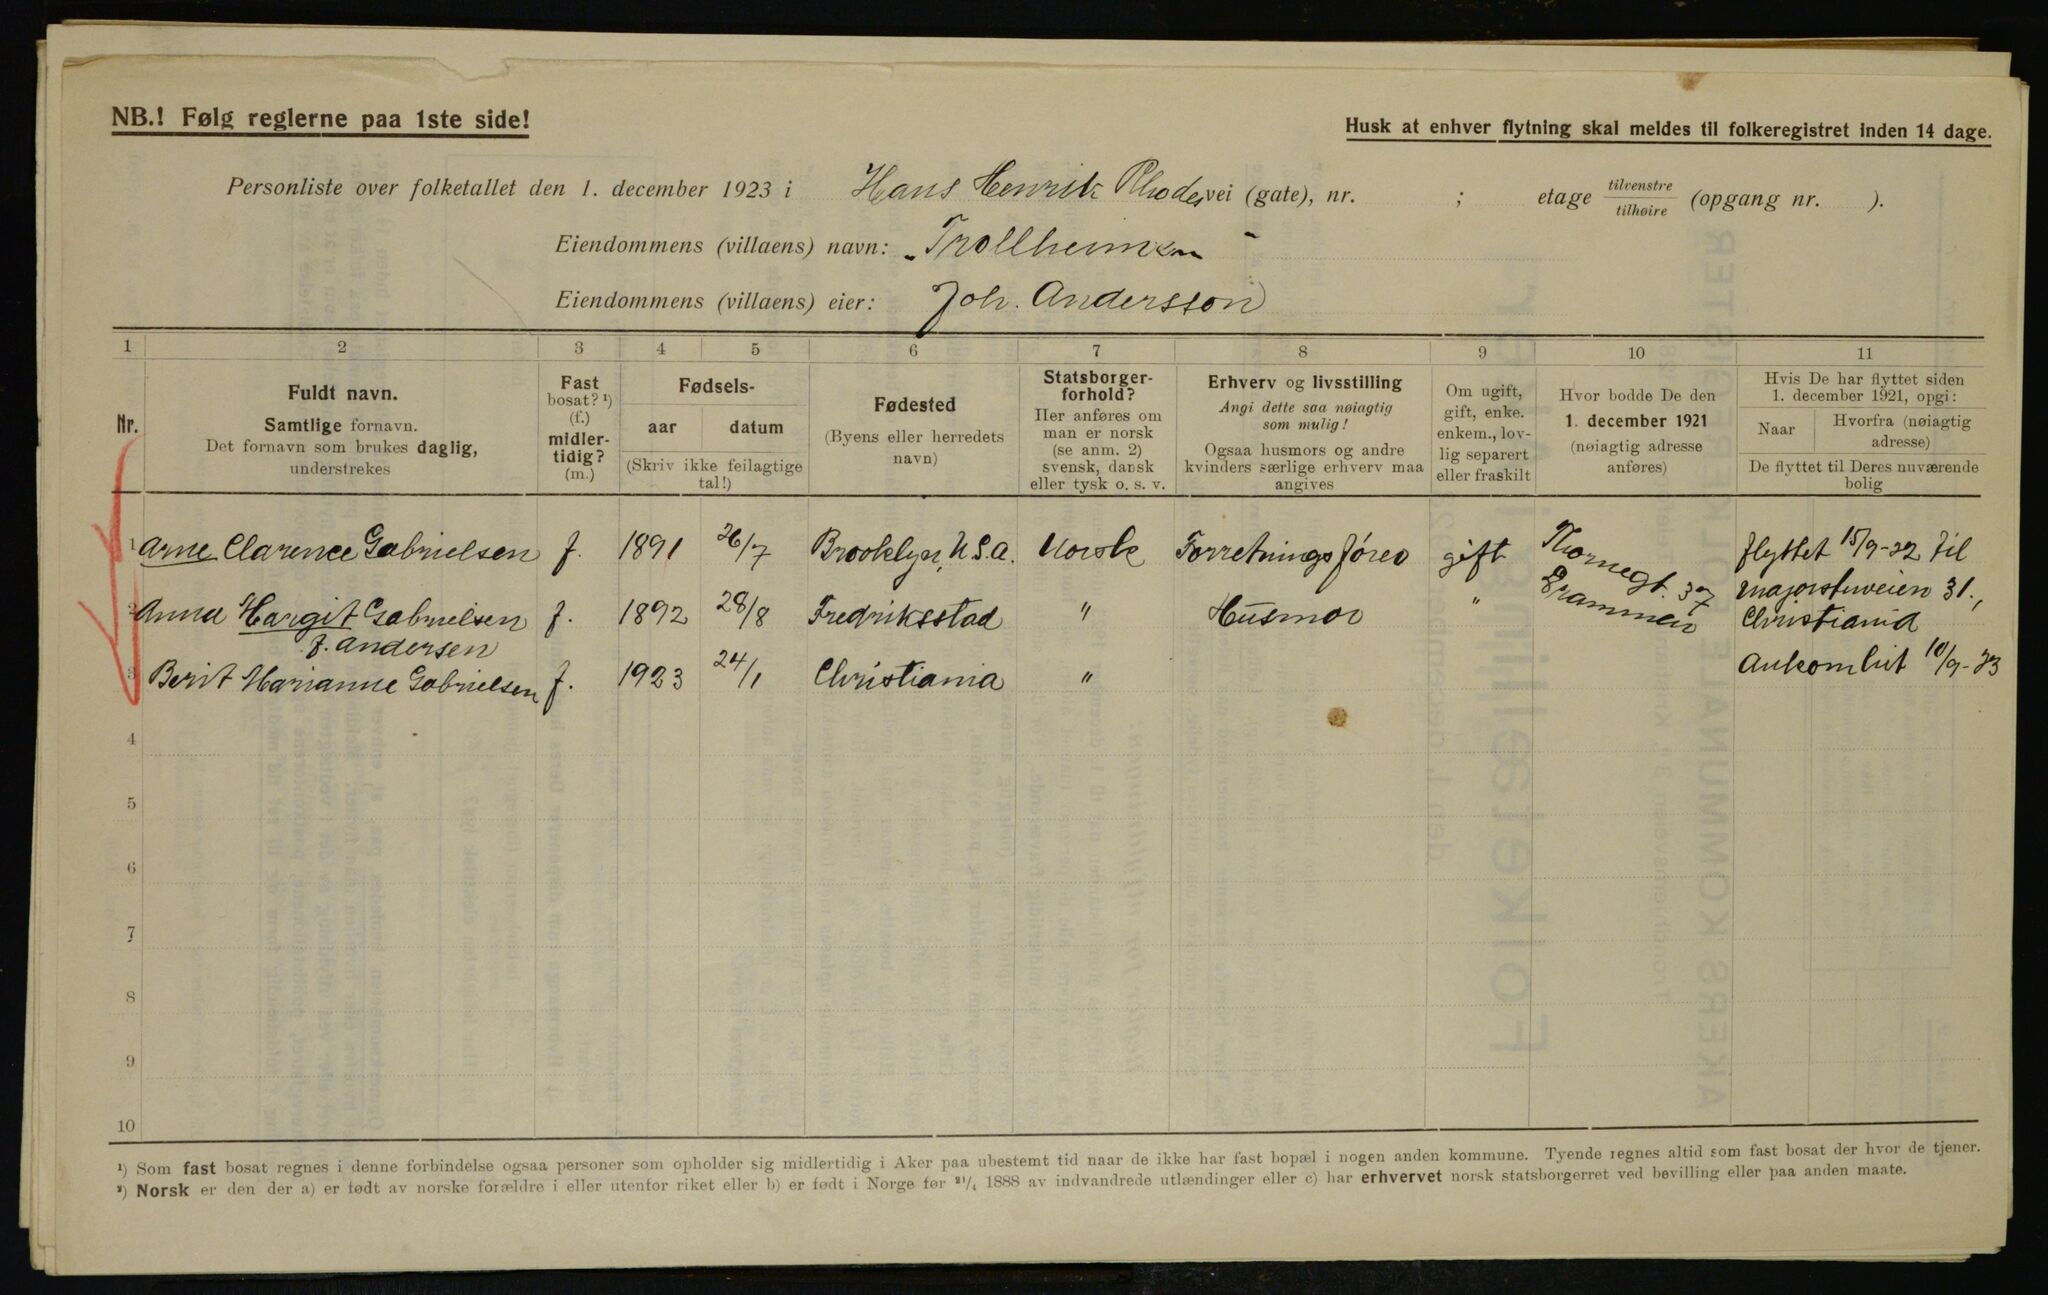 NB.! Følg reglerne paa 1ste side!
Husk at enhver flytning skal meldes til folkeregistret inden 14 dage.
Personliste over folketallet den 1. december 1923 i Hans Henrik Rhodes vei (gate), nr. ; etage tilvenstre tilhøire (opgang nr. ).
Eiendommens (villaens) navn: "Trollheim"
Eiendommens (villaens) eier: Joh. Andersson
1 2 3 4 5 6 7 8 9 10 11
Nr.
Fuldt navn.
Samtlige fornavn.
Det fornavn som brukes daglig,
understrekes
Fast
bosat? ¹)
(f.)
midler-
tidig?
(m.)
Fødsels-
aar datum
(Skriv ikke feilagtige
tal!)
Fødested
(Byens eller herredets
navn)
Statsborger-
forhold?
Her anføres om
man er norsk
(se anm. 2)
svensk, dansk
eller tysk o. s. v.
Erhverv og livsstilling
Angi dette saa nøiagtig
som mulig!
Ogsaa husmors og andre
kvinders særlige erhverv maa
angives
Om ugift,
gift, enke.
enkem., lov-
lig separert
eller fraskilt
Hvor bodde De den
1. december 1921
(nøiagtig adresse
anføres)
Hvis De har flyttet siden
1. december 1921, opgi:
Naar
Hvorfra (nøiagtig
adresse)
De flyttet til Deres nuværende
bolig
1 Arne Clarence Gabrielsen f. 1891 26/7 Brooklyn, U.S.A. Norsk Forretningsfører gift Thornegt. 37 Drammen flyttet 15/9-22 til
2 Anna Margit Gabrielsen f. 1892 28/8 Fredriksstad " Husmor " majorstuveien 31.,
f. Andersen Christiania
3 Berit Marianne Gabrielsen f. 1923 24/1 Christiania " Ankomhit 10/9-23
4
5
6
7
8
9
10
¹) Som fast bosat regnes i denne forbindelse ogsaa personer som opholder sig midlertidig i Aker paa ubestemt tid naar de ikke har fast bopæl i nogen anden kommune. Tyende regnes altid som fast bosat der hvor de tjener.
²) Norsk er den der a) er født av norske forældre i eller utenfor riket eller b) er født i Norge før ²¹/₄ 1888 av indvandrede utlændinger eller c) har erhvervet norsk statsborgerret ved bevilling eller paa anden maate.